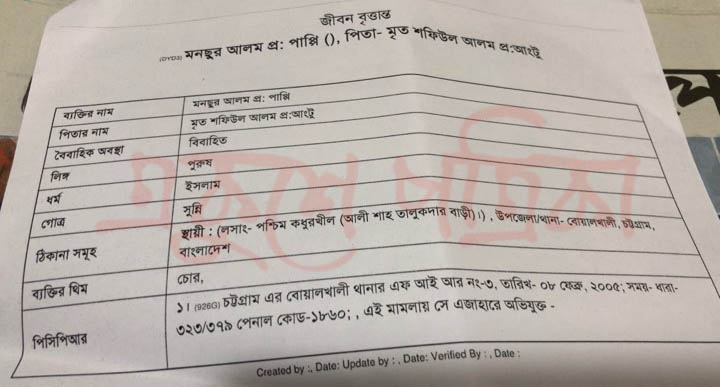 জীবন বৃত্তান্ত
(DYD3) মনছুর আলম প্র: পাপ্পি (), পিতা- মৃত শফিউল আলম প্র:আংটু
ব্যক্তির নাম মনছুর আলম প্র: পাপ্পি
পিতার নাম মৃত শফিউল আলম প্র:আংটু
বৈবাহিক অবস্থা বিবাহিত
লিঙ্গ পুরুষ
ধর্ম ইসলাম
গোত্র সুন্নি
ঠিকানা সমূহ স্থায়ী : (লসাং- পশ্চিম কধুরখীল (আলী শাহ তালুকদার বাড়ী)।) , উপজেলা/থানা- বোয়ালখালী, চট্টগ্রাম,
বাংলাদেশ
ব্যক্তির থিম চোর,
পিসিপিআর ১। (926G) চট্টগ্রাম এর বোয়ালখালী থানার এফ আই আর নং-৩, তারিখ- ০৮ ফেব্রু, ২০০৫; সময়- ধারা-
৩২৩/৩৭৯ পেনাল কোড-১৮৬০; , এই মামলায় সে এজাহারে অভিযুক্ত -
Created by :, Date: Update by : , Date: Verified By : , Date :
একুশে পত্রিকা